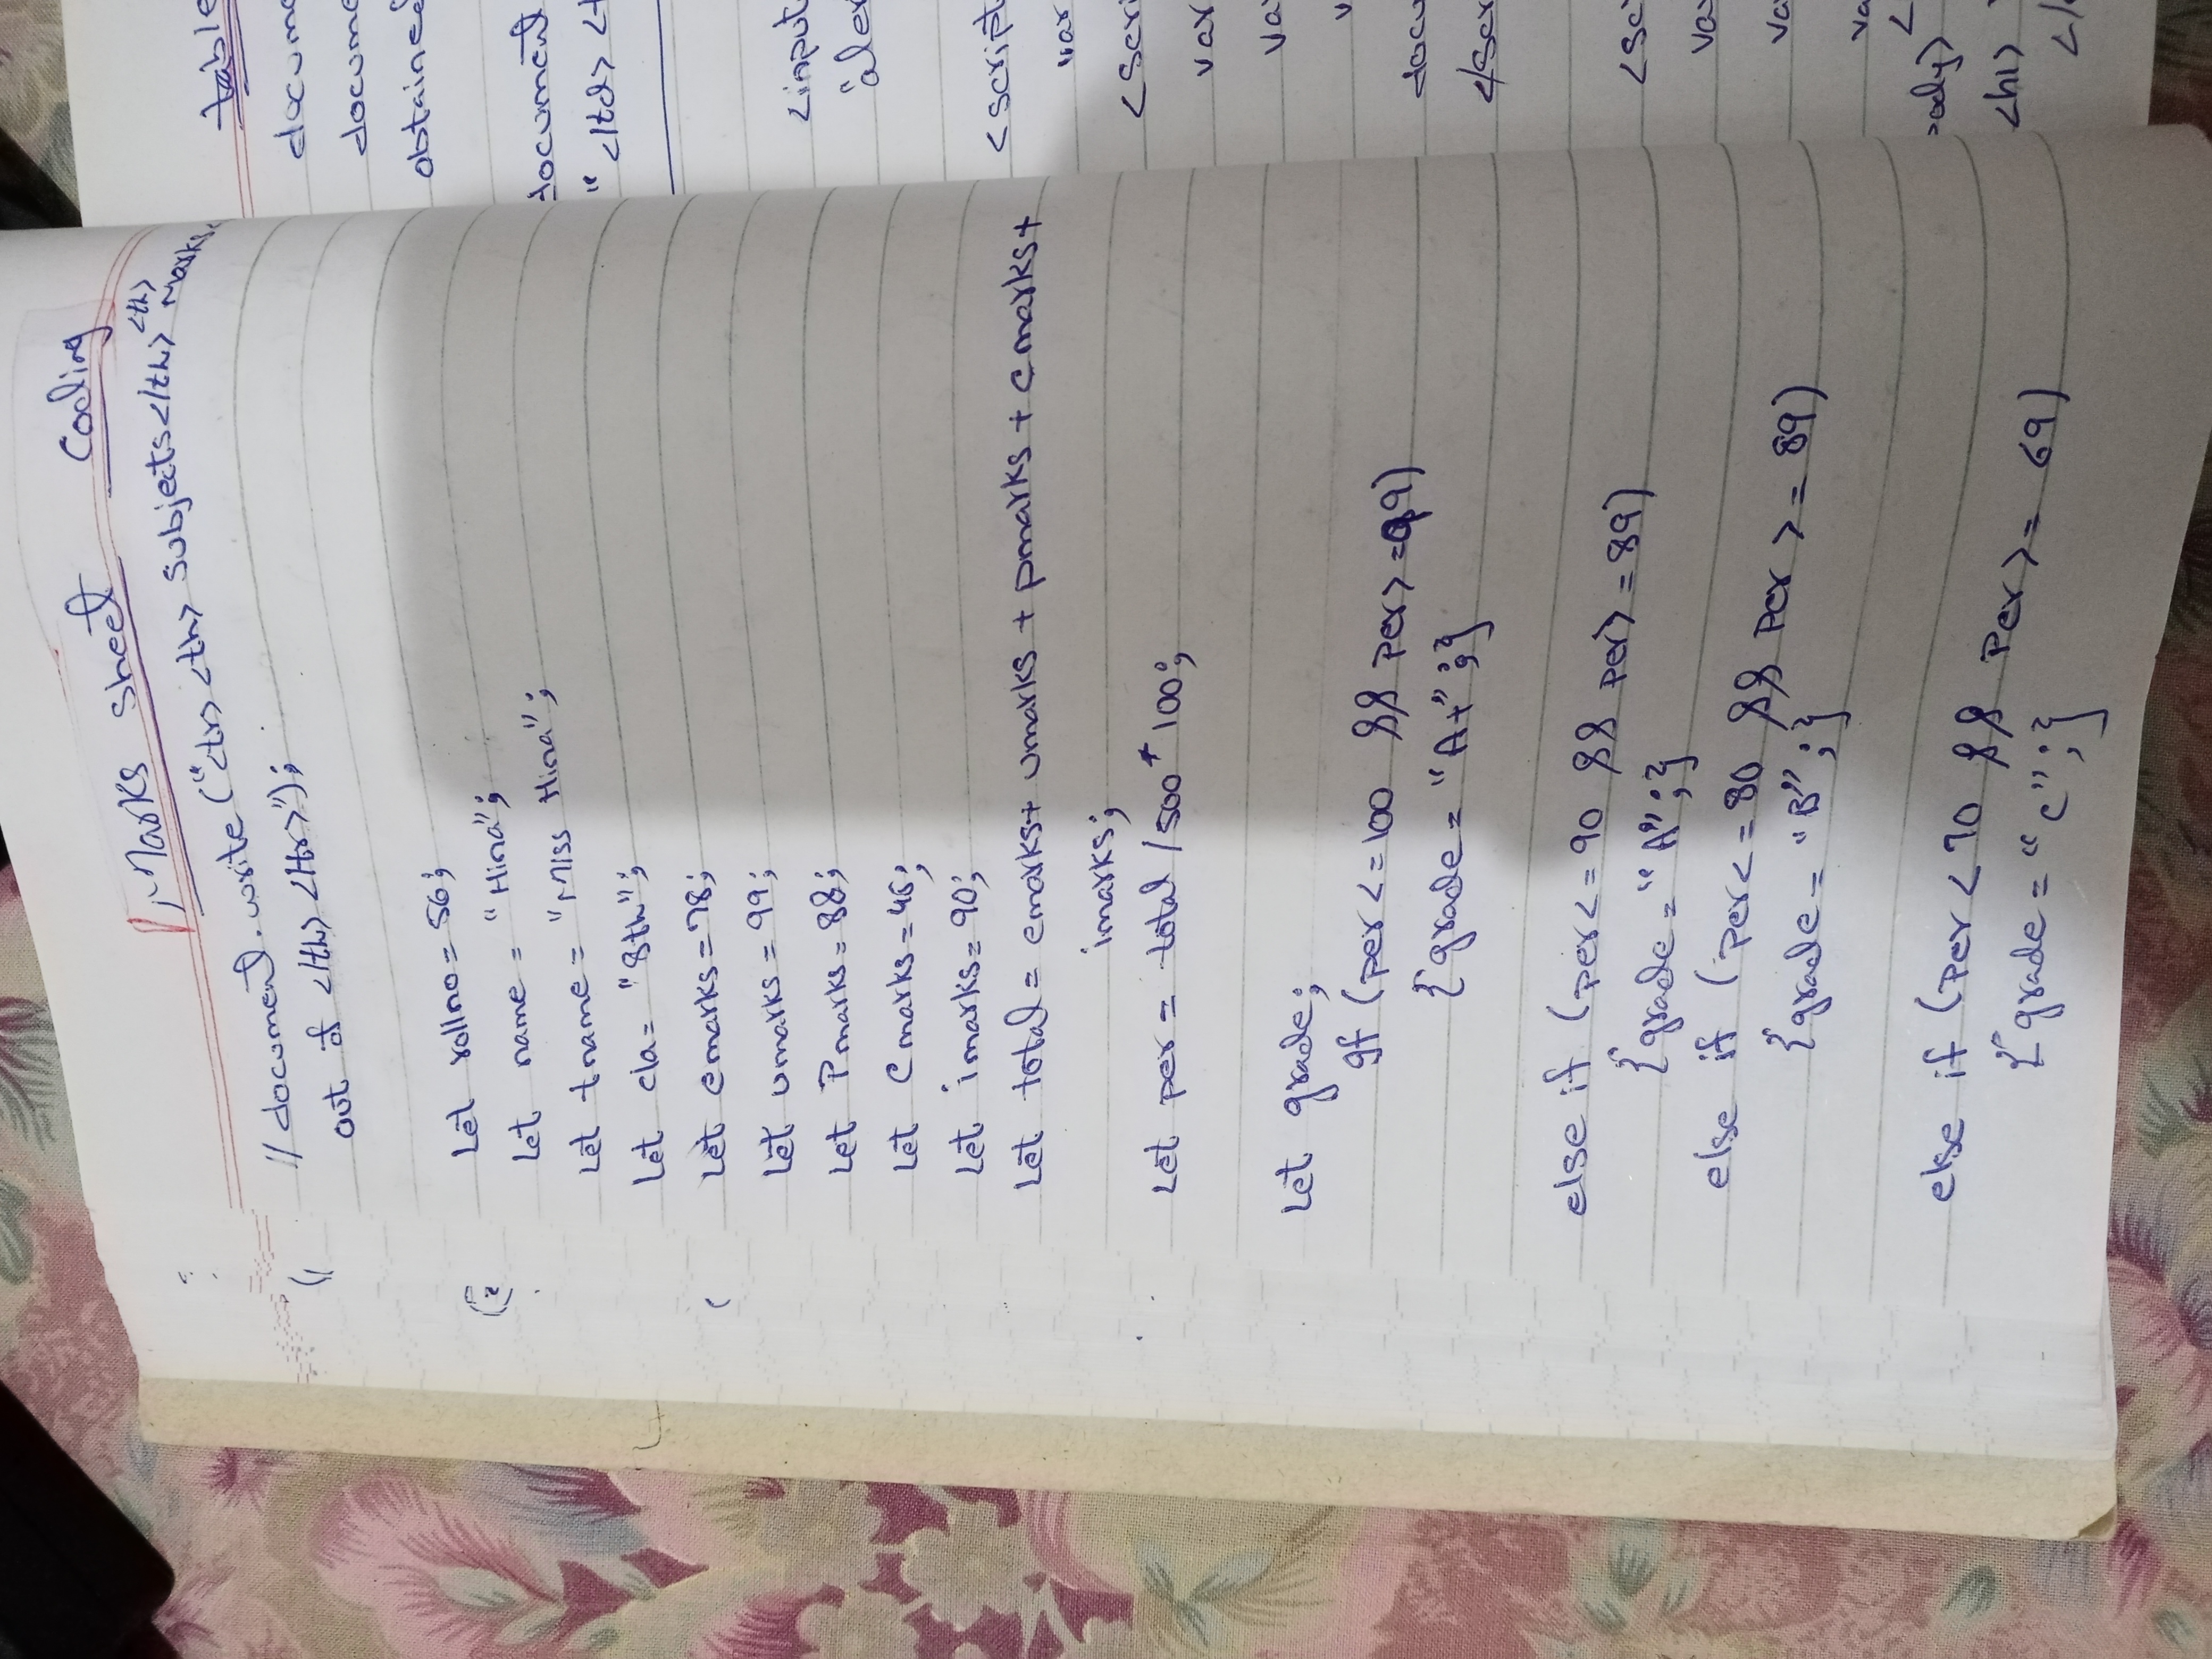 Marks sheet Coding
// document.write ("<tr><th> subjects</th><th> Marks
out of </th></tr>");
Let rollno = 56;
Let name = "Hina";
Let tname = "Miss Hina";
Let cla = "8th";
Let emarks = 78;
Let umarks = 99;
Let Pmarks = 88;
Let Cmarks = 46;
Let imarks = 90;
Let total = emarks + umarks + pmarks + cmarks +
imarks;
Let per = total / 500 * 100;
Let grade;
if (per <= 100 && per >= 99)
{grade = "A+";}
else if (per <= 90 && per >= 89)
{grade = "A";}
else if (per <= 80 && per >= 89)
{grade = "B";}
else if (per < 70 && per >= 69)
{grade = "C";}
table
docume
docume
obtained
document
" </td> <t
<input
"aler
<script
var
<scri
var
va
v
docu
</scr
<sc
va
va
va
<
body>
<h1>
</